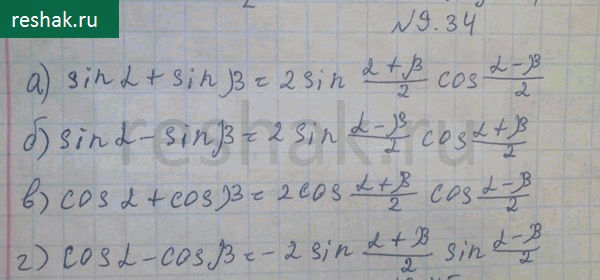 reshak.ru
№9.34
а) sin α + sin β = 2 sin (α + β)/2 cos (α - β)/2
б) sin α - sin β = 2 sin (α - β)/2 cos (α + β)/2
reshak.ru
в) cos α + cos β = 2 cos (α + β)/2 cos (α - β)/2
г) cos α - cos β = - 2 sin (α + β)/2 sin (α - β)/2